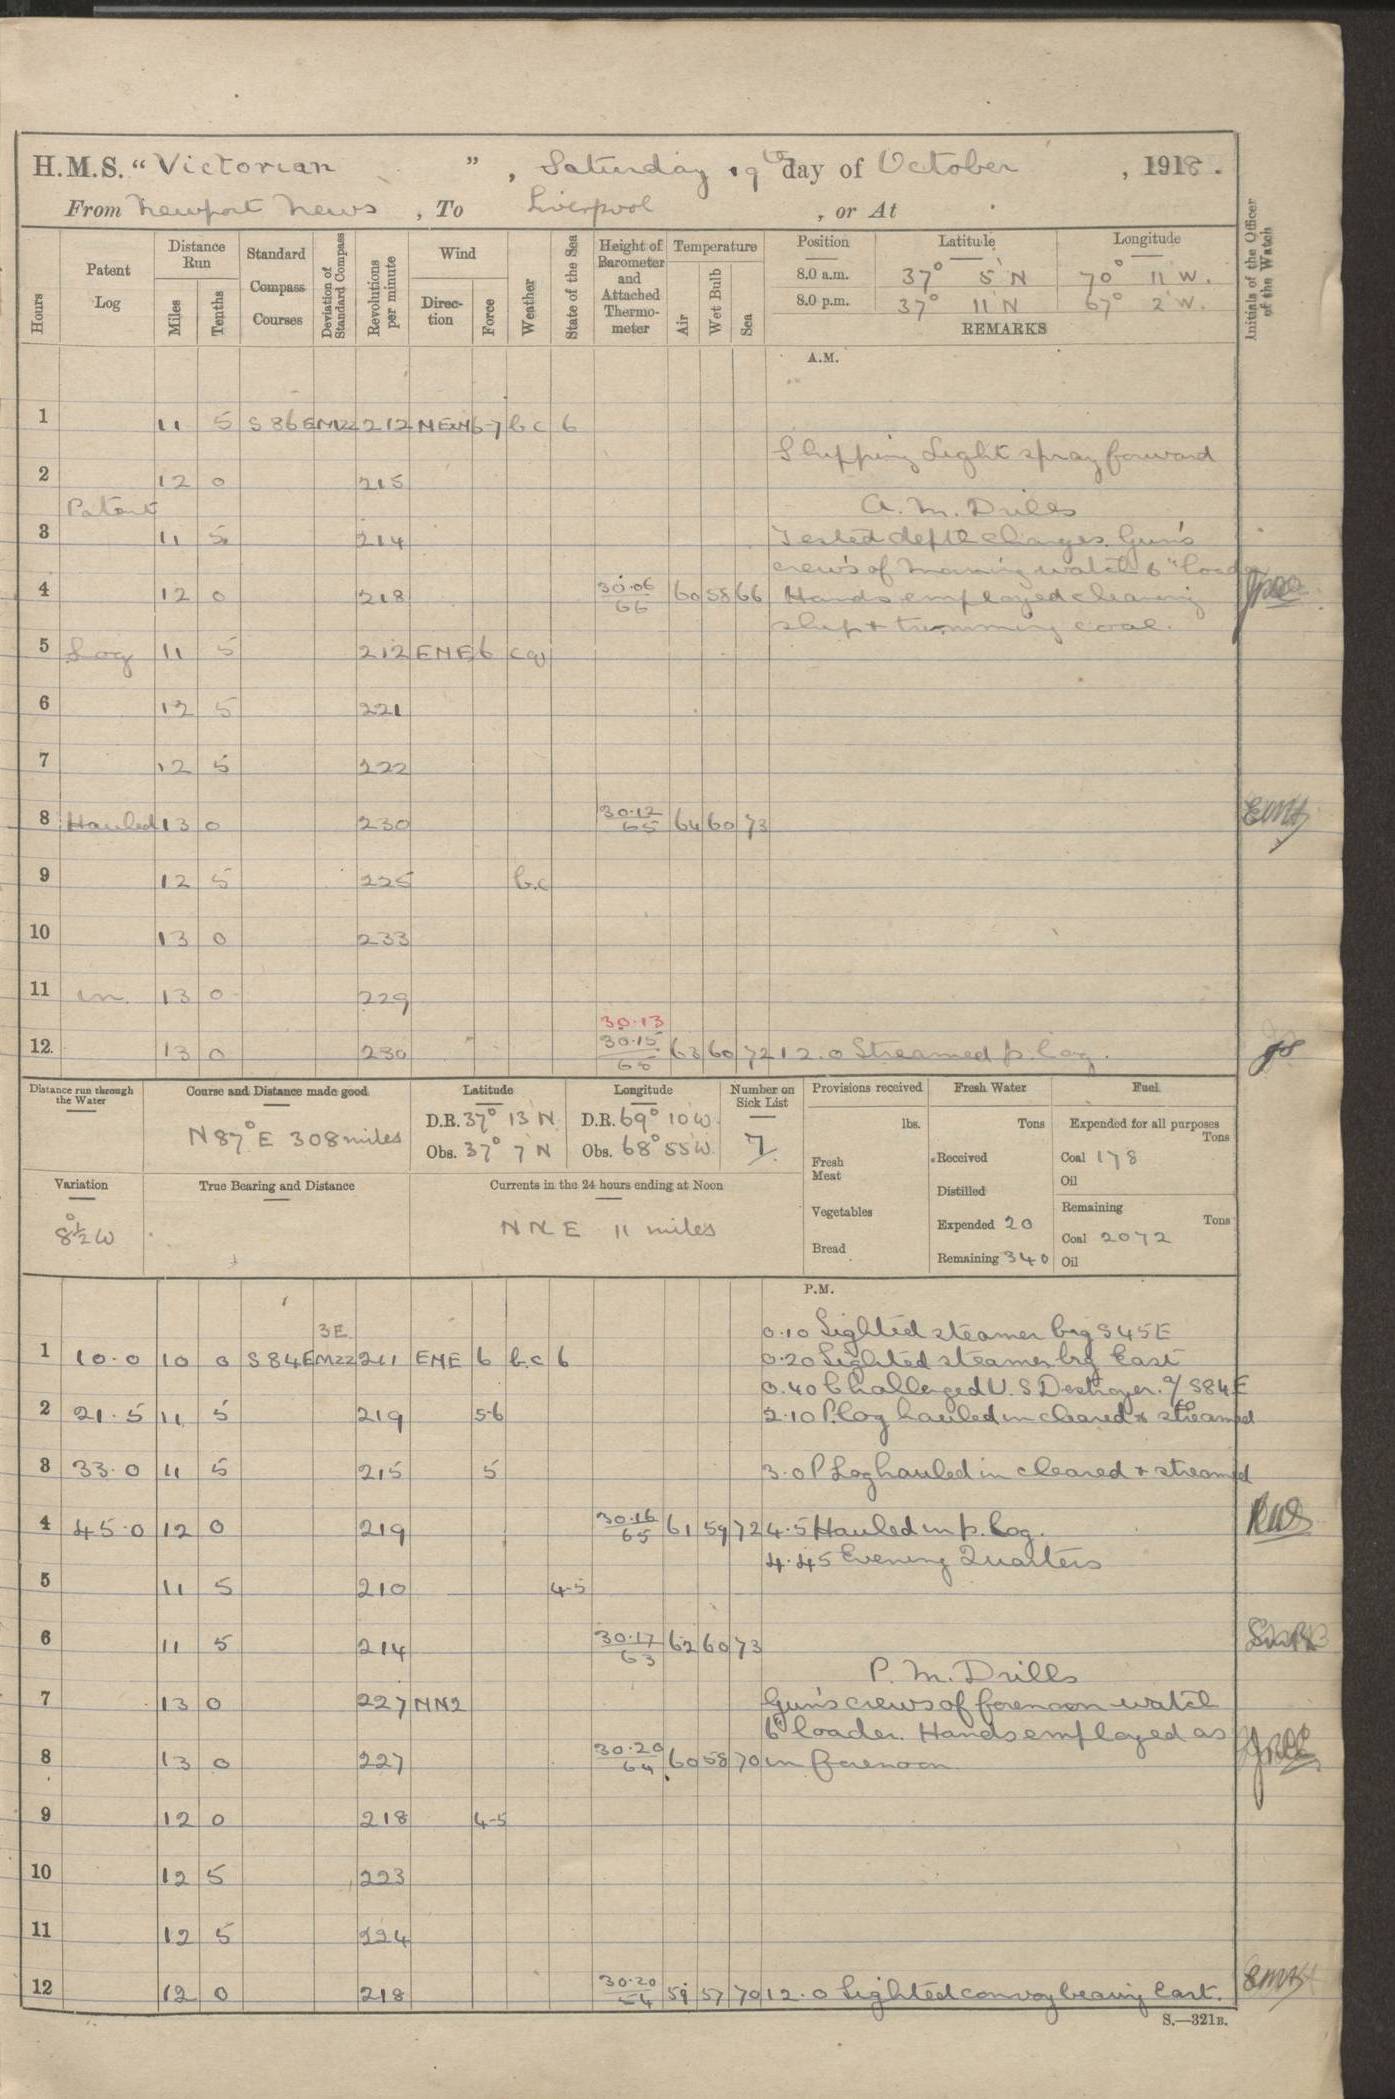 H.M.S. “ Victorian ”, Saturday 19th day of October, 1918.
From Newport News, To Liverpool, or At
Hours
Patent Log
Distance Run
Miles
Tenths
Standard Compass Courses
Deviation of Standard Compass
Revolutions per minute
Wind
Direction
Force
Weather
State of the Sea
Height of Barometer and Attached Thermometer
Temperature
Air
Wet Bulb
Sea
Position Latitude Longitude
8.0 a.m. 37° 5' N 70° 11' W.
8.0 p.m. 37° 11' N 67° 2' W.
REMARKS
Initials of the Officer of the Watch
A.M.
1 11 5 S 86 E 212 6-7 b c 6
Shipping light spray forward
2 12 0 215
Patent
A.M. Drills
3 11 5 214 Tested depth charges. Gun's
crew's of morning watch 6" loader
4 12 0 218 30.06 66 60 58 66 Hands employed cleaning
ship + trimming coal.
5 Log 11 5 212 ENE 6 c q
6 12 5 221
7 12 5 222
8 Hauled 13 0 230 30.12 65 64 60 73
9 12 5 225 b.c
10 13 0 233
11 in. 13 0 229
30.13
12. 13 0 230 30.15 63 60 72 12.0 Streamed p. log.
Distance run through the Water
Course and Distance made good
N 87° E 308 miles
Latitude
D.R. 37° 13' N
Obs. 37° 7' N
Longitude
D.R. 69° 10' W.
Obs. 68° 55' W.
Number on Sick List
7
Provisions received
lbs.
Fresh Meat
Vegetables
Bread
Fresh Water
Tons
Received
Distilled
Expended 20
Remaining 340
Fuel
Expended for all purposes
Tons
Coal 178
Oil
Remaining
Tons
Coal 2072
Oil
Variation
8½° W
True Bearing and Distance
Currents in the 24 hours ending at Noon
NNE 11 miles
P.M.
3E
0.10 Sighted steamer brg S45E
1 10.0 10 0 S 84 E 211 ENE 6 b.c 6 0.20 Sighted steamer brg East
0.40 Challenged U.S Destroyer. S84E
2 21.5 11 5 219 5-6 2.10 P. log hauled in cleared & streamed
3 33.0 11 5 215 5 3.0 P Log hauled in cleared + streamed
4 45.0 12 0 219 30.16 65 61 59 72 4.5 Hauled in p. log.
4.45 Evening Quarters
5 11 5 210 4-5
6 11 5 214 30.17 63 62 60 73
P.M. Drills
7 13 0 227 Gun's crews of forenoon watch
6" loader. Hands employed as
8 13 0 227 30.20 64 60 58 70 in forenoon
9 12 0 218 4-5
10 12 5 223
11 12 5 224
12 12 0 218 30.20 59 57 70 12.0 Sighted convoy bearing East.
S.—321B.